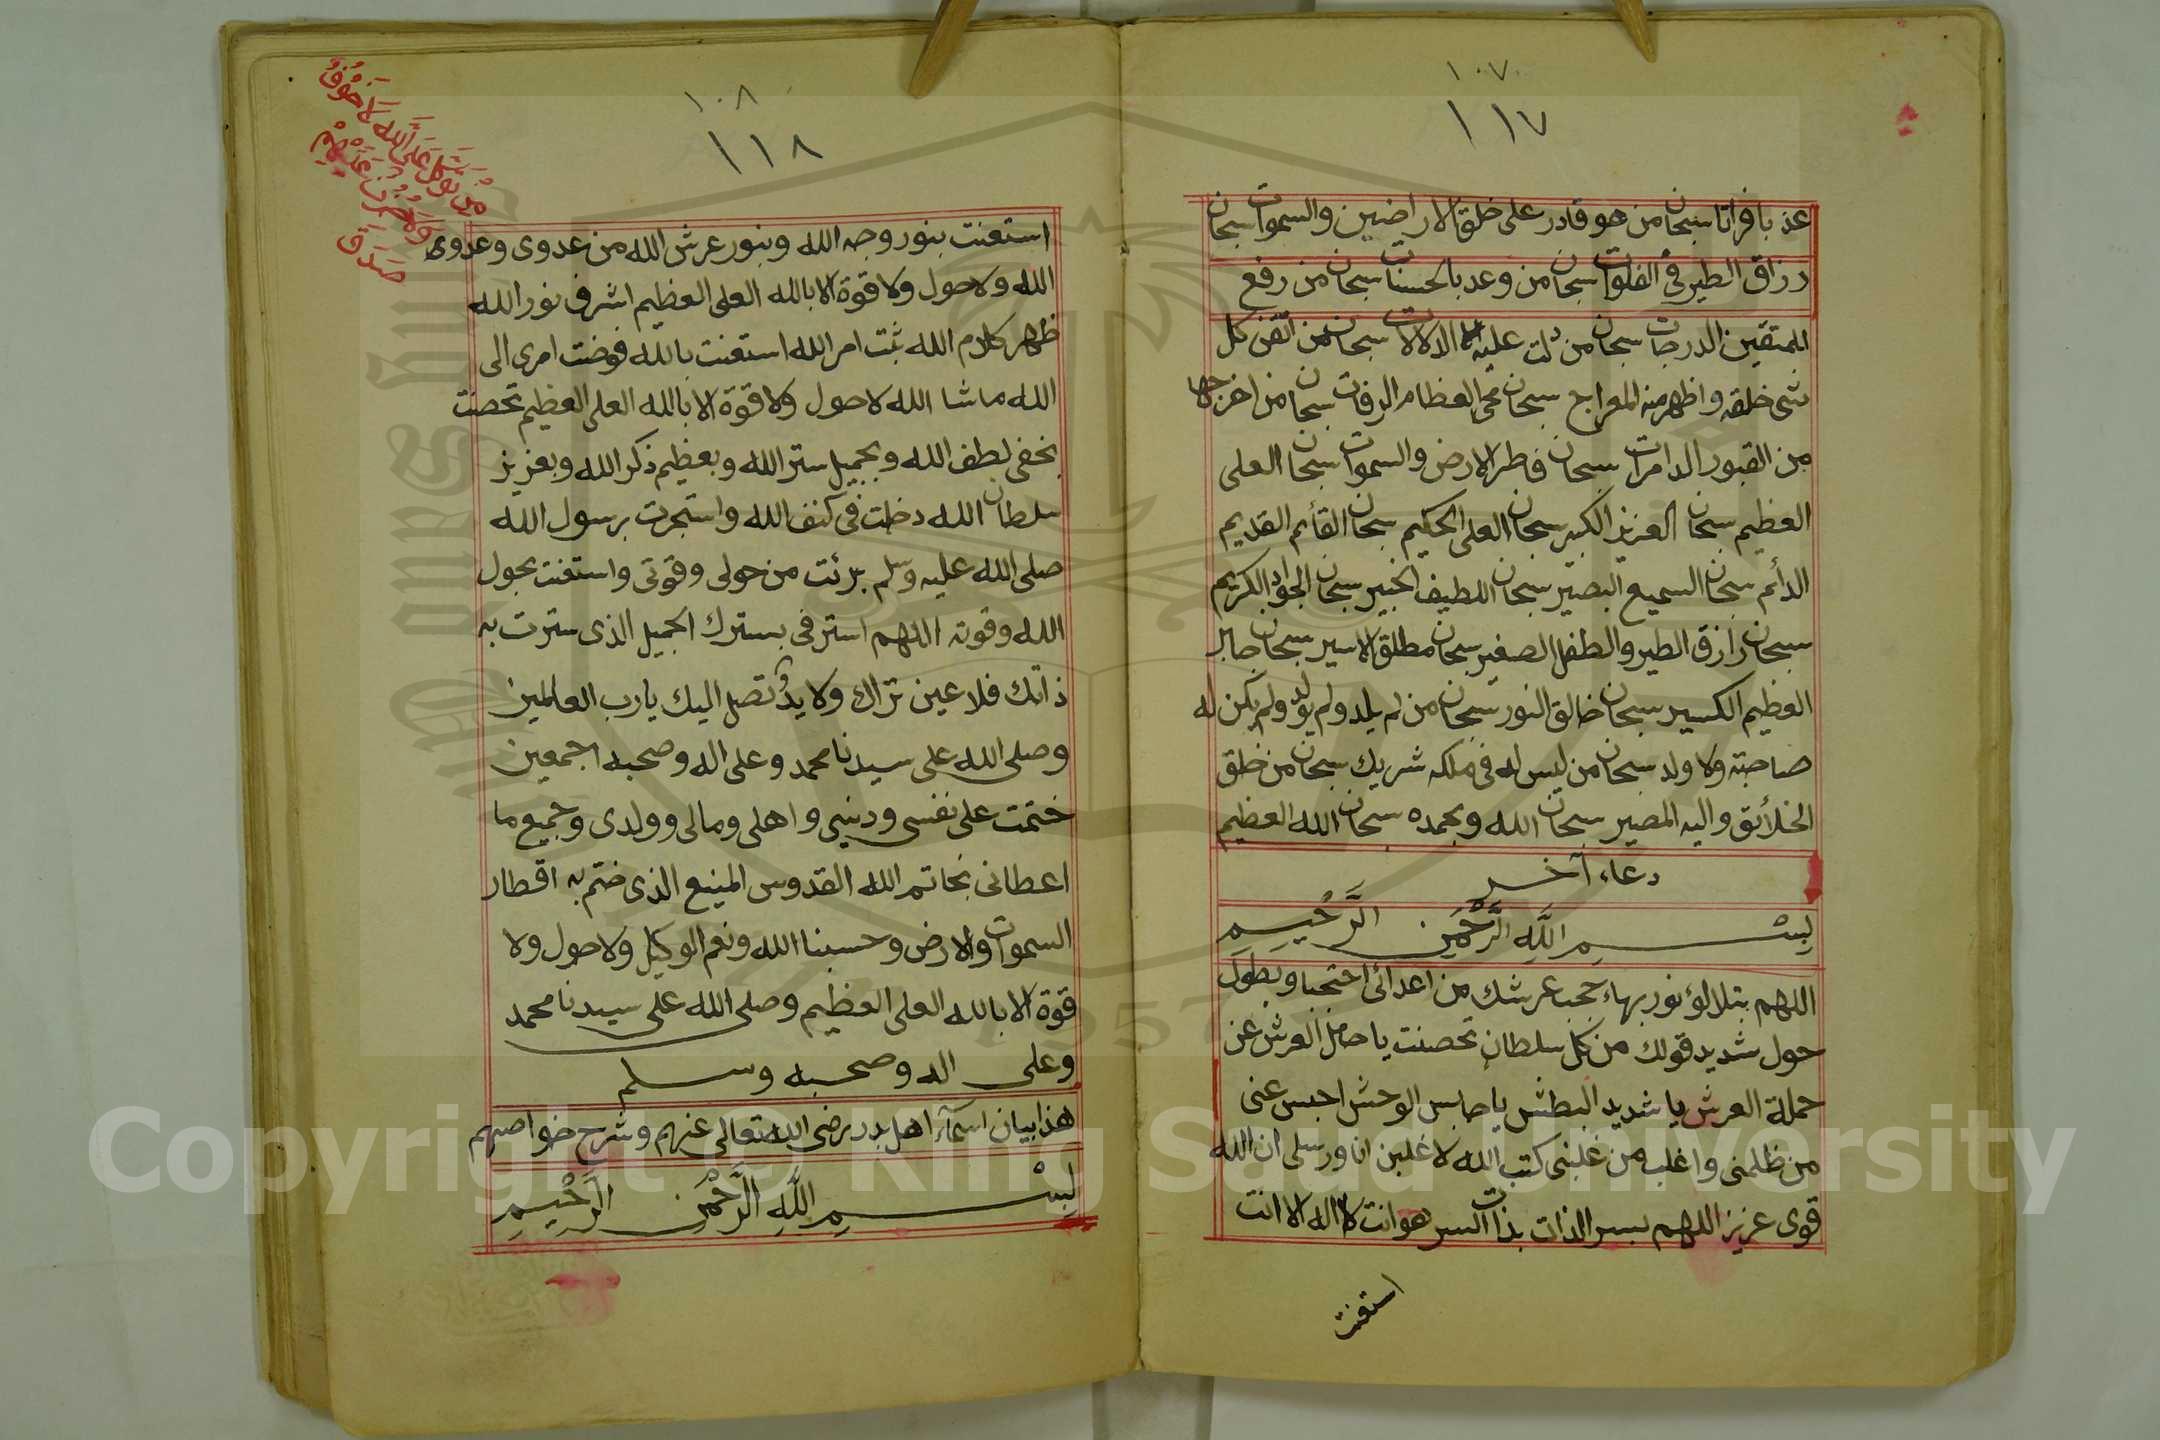 ١٠٧
١١٧
عذبا فراتا سبحان من هو قادر على خلق الاراضين والسموات سبحان
رزاق الطير في الفلوات سبحان من وعد بالحسنات سبحان من رفع
للمتقين الدرجات سبحان من دلت عليه الدلالات سبحان من اتقن كل
شى خلقه واظهر منه المعراج سبحان محى العظام الرفات سبحان من اخرجها
من القبور الدامرات سبحان فاطر الارض والسموات سبحان العلى
العظيم سبحان العزيز الكبير سبحان العلى الحكيم سبحان القائم القديم
الدائم سبحان السميع البصير سبحان اللطيف الخبير سبحان الجواد الكريم
سبحان رازق الطير والطفل الصغير سبحان مطلق الاسير سبحان جابر
العظيم الكسير سبحان خالق النور سبحان من لم يلد ولم يولد ولم يكن له
صاحبة ولا ولد سبحان من ليس له فى ملكه شريك سبحان من خلق
الخلائق واليه المصير سبحان الله وبحمده سبحان الله العظيم
دعاء آخر
بِسْمِ اللَّهِ الرَّحْمَنِ الرَّحِيمِ
اللهم بتلالؤ نور بهاء حجب عرشك من اعدائى احتجبنا وبطول
حول شديد قولك من كل سلطان تحصنت يا حامل العرش عن
حملة العرش يا شديد البطش يا حابس الوحش احبس عنى
من ظلمنى واغلب من غلبنى كتب الله لاغلبن انا ورسلى ان الله
قوى عزيز اللهم بسر الذات بذات السر هو انت لا اله الا انت
استعنت
١٠٨
١١٨
مَنْ تَوَكَّلَ عَلَى اللَّهِ لَا خَوْفٌ
وَلَا حُزْنٌ عَلَيْهِمْ
صَدَقَ
استعنت بنور وجه الله وبنور عرش الله من عدوى وعدوى
الله ولاحول ولا قوة الا بالله العلى العظيم اشرف نور الله
ظهر كلام الله ثبت امر الله استعنت بالله فوضت امرى الى
الله ماشا الله لاحول ولا قوة الا بالله العلى العظيم تحصنت
بخفى لطف الله وبجميل ستر الله وبعظيم ذكر الله وبعزيز
سلطان الله دخلت فى كنف الله واستجرت برسول الله
صلى الله عليه وسلم برئت من حولى وقوتى واستعنت بحول
الله وقوته اللهم استرنى بسترك الجميل الذى سترت به
ذاتك فلا عين تراك ولا يدٌ تصل اليك يارب العالمين
وصلى الله على سيدنا محمد وعلى اله وصحبه اجمعين
ختمت على نفسى ودينى واهلى ومالى وولدى وجميع ما
اعطانى بخاتم الله القدوس المنيع الذى ختم به اقطار
السموات والارض وحسبنا الله ونعم الوكيل ولاحول ولا
قوة الا بالله العلى العظيم وصلى الله على سيدنا محمد
وعلى اله وصحبه وسلم
هذا بيان اسمآء اهل بدر رضى الله تعالى عنهم وشرح خواصهم
بِسْمِ اللَّهِ الرَّحْمَنِ الرَّحِيمِ
1957
Copyright © King Saud University